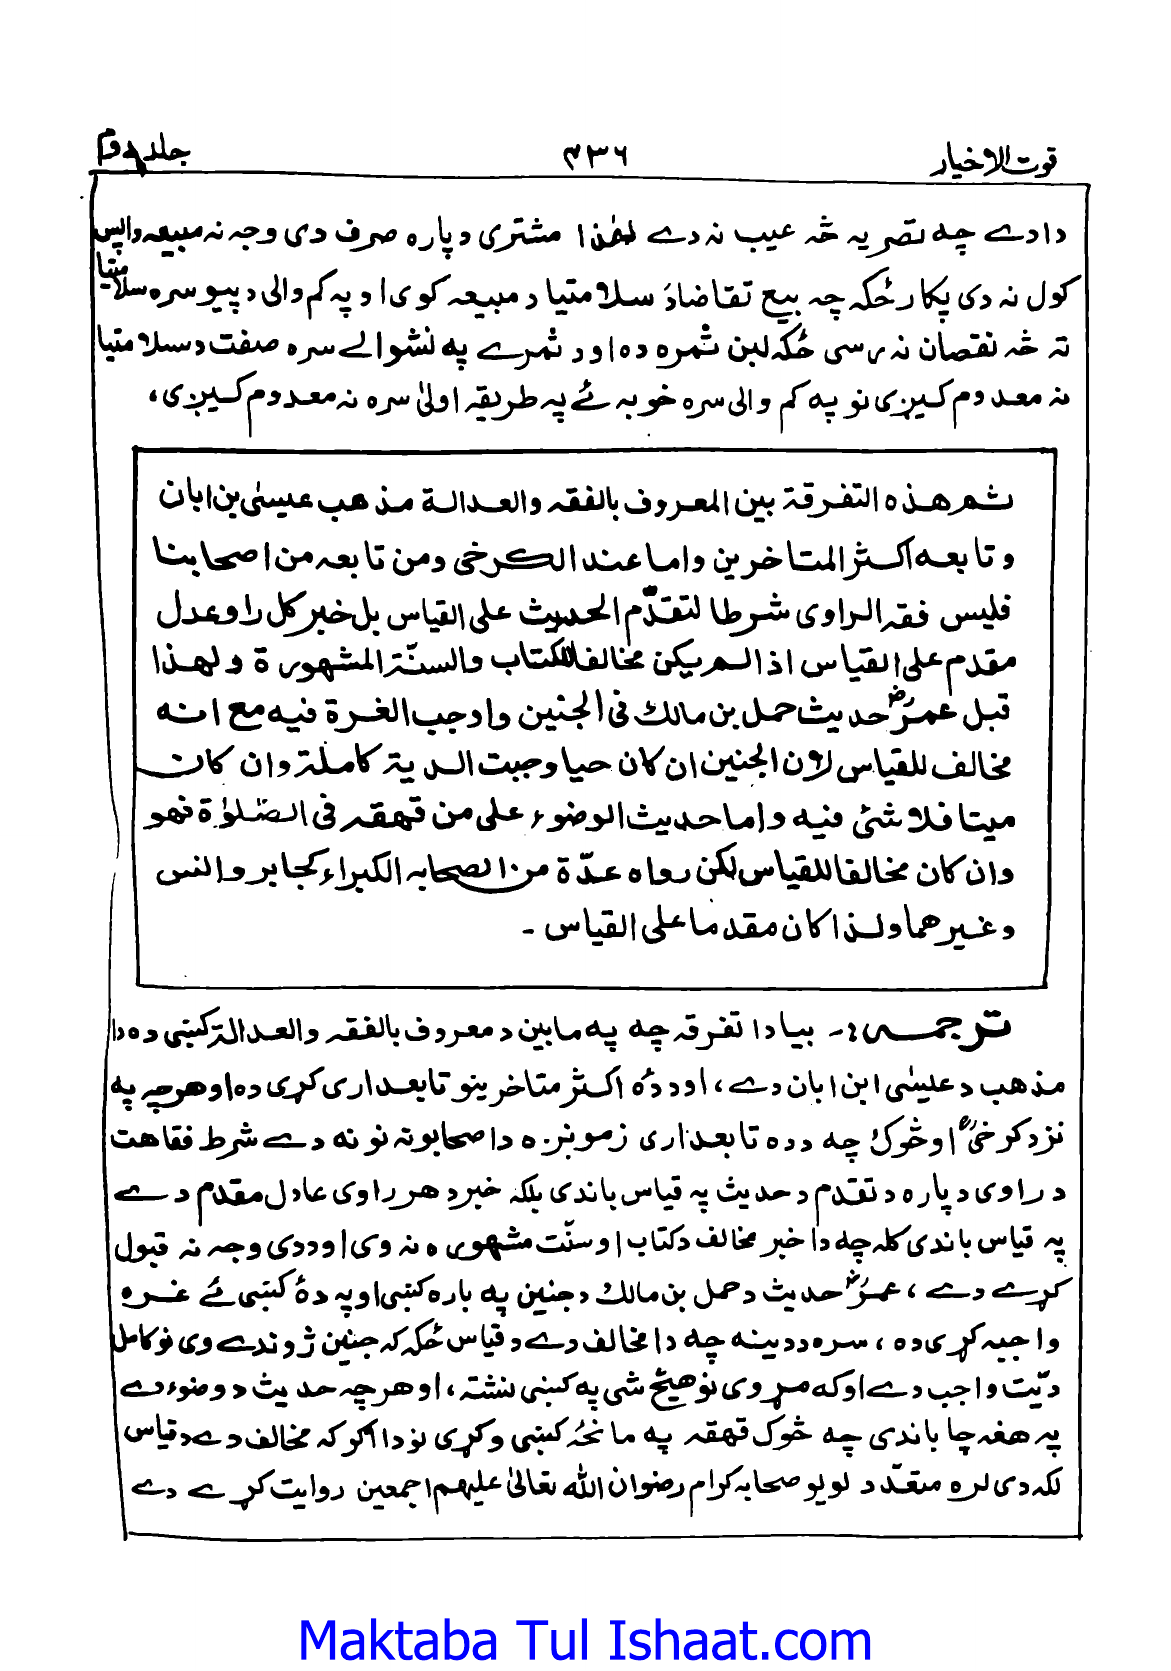 قوت الاخیار ۴۳۶ جلد دوم
دا دے چه تصریه څه عیب نه دے لهٰذا مشتری دپاره صرف دی وجه نه مبیعه واپس
کول نه دی پکار ځکه چه بیع تقاضا د سلامتیا د مبیعه کوی او په کم والی د پیو سره سلامتیا
ته څه نقصان نه رسی ځکه لبن ثمره ده او د ثمرے په نشوالے سره صفت د سلامتیا
نه معدوم کیږی نو په کم والی سره خو به ئے په طریقه اولیٰ سره نه معدوم کیږی،
ثم هذه التفرقة بین المعروف بالفقه والعدالة مذهب عیسیٰ بن ابان
وتابعه اکثر المتاخرین واما عند الکرخی ومن تابعه من اصحابنا
فلیس فقه الراوی شرطا لتقدّم الحدیث علی القیاس بل خبر کل راو عدل
مقدم علی القیاس اذا لم یکن مخالفا للکتاب والسنّة المشهورة ولهذا
قبل عمرؓ حدیث حمل بن مالك فی الجنین واوجب الغرة فیه مع انه
مخالف للقیاس لان الجنین ان کان حیا وجبت الدیة کاملة وان کان
میتا فلا شئ فیه واما حدیث الوضوء علی من قهقه فی الصّلوٰة فهو
وان کان مخالفا للقیاس لکن رواه عدّة من الصحابه الکبراء کجابر وانس
وغیرهما ولذا کان مقدما علی القیاس -
ترجمه:- بیا دا تفرقه چه په مابین د معروف بالفقه والعدالة کښی ده دا
مذهب د عیسٰی ابن ابان دے، او د دهٔ اکثر متاخرینو تابعداری کړی ده او هرچه په
نزد کرخیؒ او څوك چه د ده تابعداری زمونږه د اصحابو ته نو نه دے شرط فقاهت
د راوی دپاره د تقدم د حدیث په قیاس باندی بلکه خبر د هر راوی عادل مقدم دے
په قیاس باندی کله چه دا خبر مخالف د کتاب او سنّت مشهوره نه وی او د دی وجه نه قبول
کړے دے، عمرؓ حدیث د حمل بن مالك د جنین په باره کښی او په دهٔ کښی ئے غره
واجبه کړی ده، سره د دینه چه دا مخالف دے د قیاس ځکه که جنین ژوندے وی نو کامل
دیّت واجب دے او که مړ وی نو هیڅ شی په کښی نشته، او هرچه حدیث د وضوء دے
په هغه چا باندی چه څوک قهقه په مانځهٔ کښی وکړی نو دا اګر که مخالف دے د قیاس
لکه دی لره متعدّد د لویو صحابه کرام رضوان الله تعالیٰ علیهم اجمعین روایت کړے دے
Maktaba Tul Ishaat.com